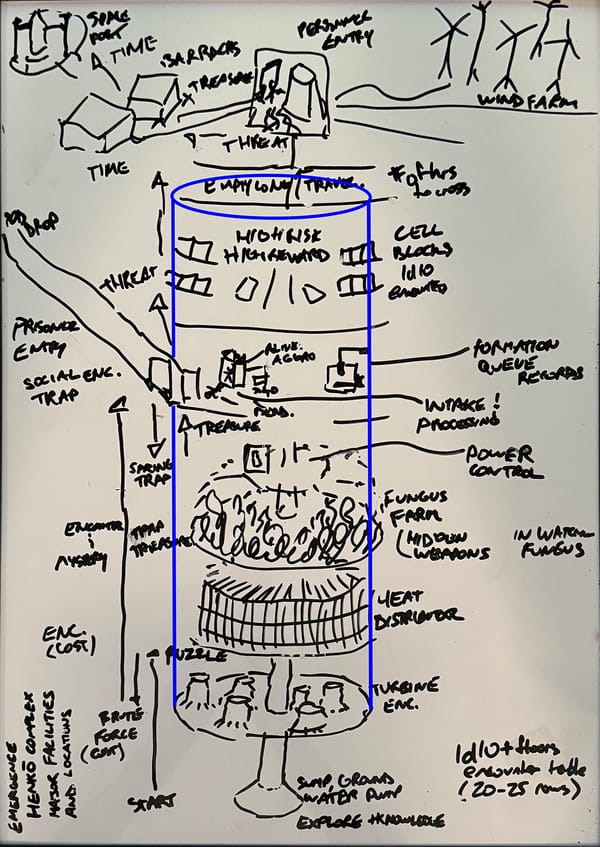 SPACE
PORT
TIME
BARRACKS
TREASURE
PERSONNEL
ENTRY
WIND FARM
TIME
THREAT
EMPTY LONG TRAVEL
# of hrs
to cross
POD
DROP
HIGH RISK
HIGH REWARD
CELL
BLOCKS
1d10
THREAT
PRISONER
ENTRY
SOCIAL ENC.
TRAP
ALIVE.
AGGRO
FORMATION
QUEUE
RECORDS
INTAKE!
PROCESSING
TREASURE
POWER
CONTROL
SPRING
TRAP
FUNGUS
FARM
(HIDDEN
WEAPONS
IN WATER
FUNGUS
ENCOUNTER
&
MYSTERY
TRAP
TREASURE
HEAT
DISTRIBUTER
ENC.
(COST)
PUZZLE
TURBINE
ENC.
BRUTE
FORCE
(COST)
START
SUMP GROUND
WATER PUMP
EXPLORE + KNOWLEDGE
1d10 + floors
encounter table
(20-25 rows)
EMERGENCE
HENKŌ COMPLEX
MAJOR FACILITIES
AND LOCATIONS